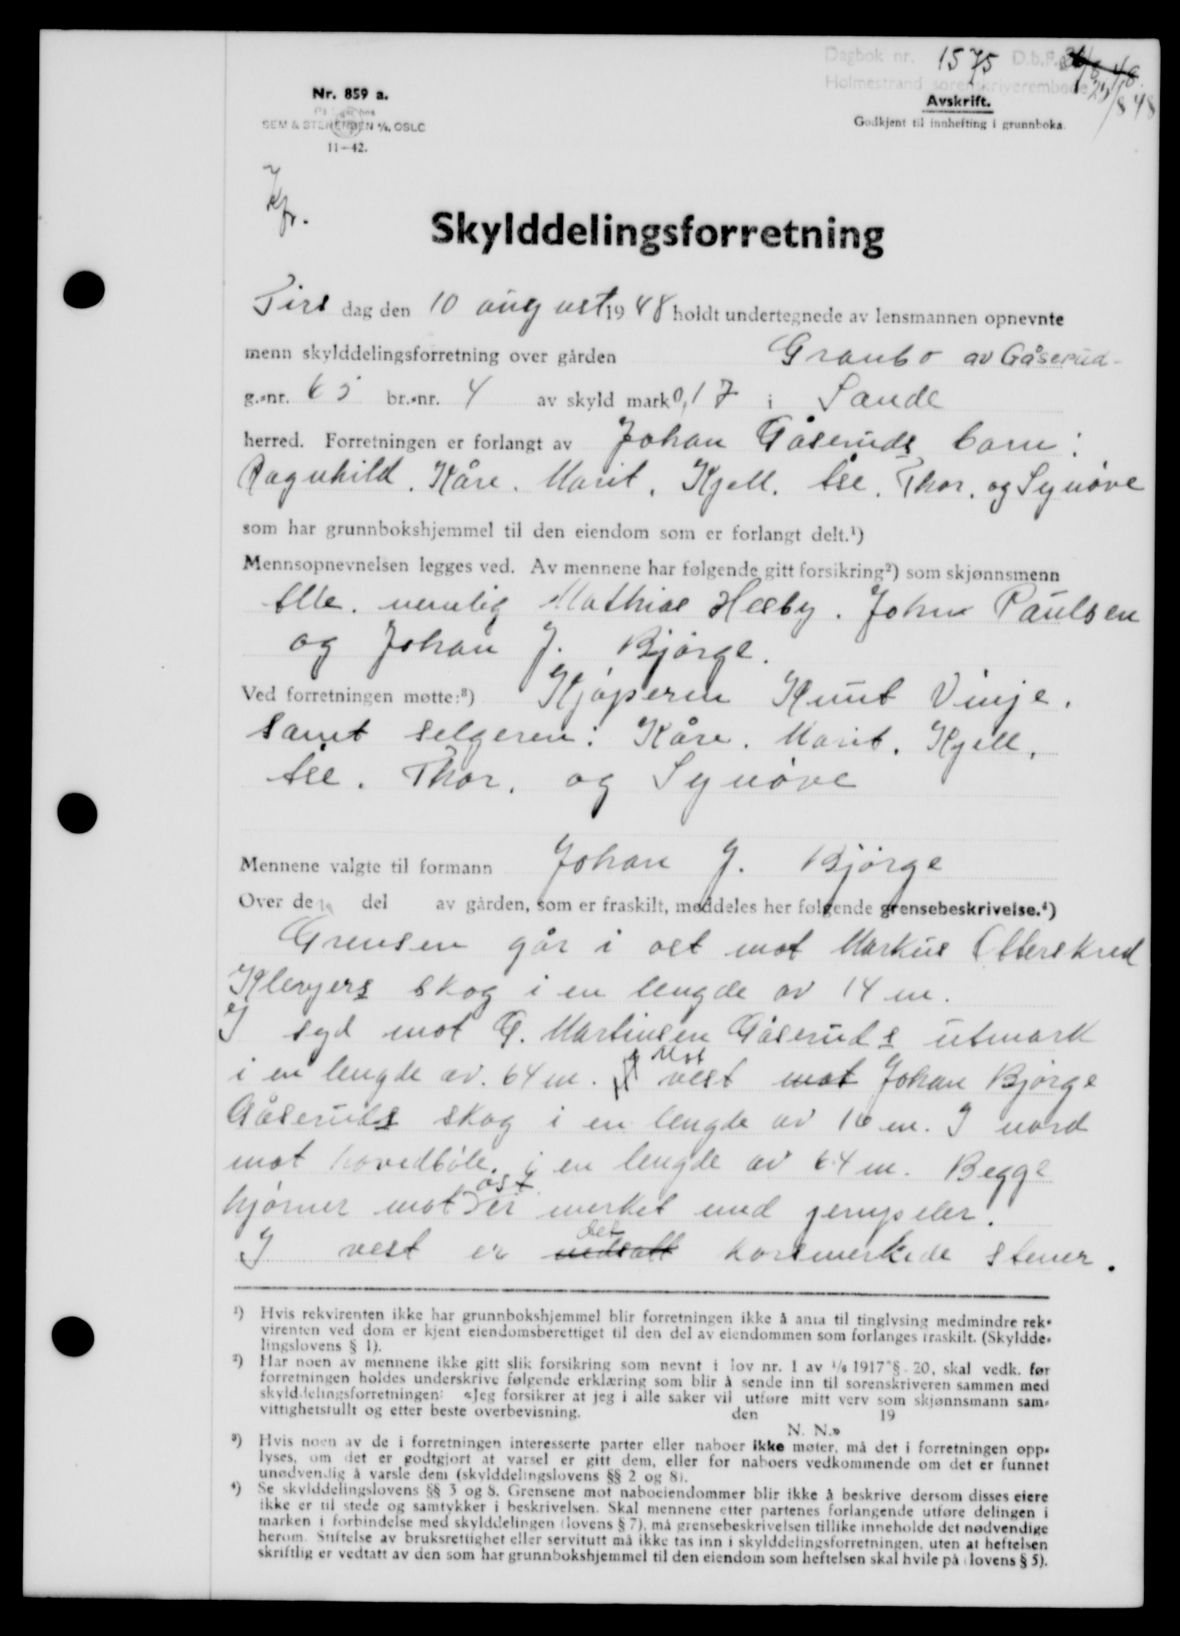 Dagbok nr. 1575 D.b.F.
Holmestrand sorenskriverembede 25/8 48
Nr. 859 a.
SEM & STENERSEN A/S, OSLO
11-42.
Avskrift.
Godkjent til innhefting i grunnboka.
Skylddelingsforretning
Tirs dag den 10 august 1948 holdt undertegnede av lensmannen opnevnte
menn skylddelingsforretning over gården Granbo av Gåserud
g.-nr. 65 br.-nr. 4 av skyld mark 0,17 i Sande
herred. Forretningen er forlangt av Johan Gåseruds barn:
Ragnhild. Kåre. Marit. Kjell. Åse. Thor. og Synøve
som har grunnbokshjemmel til den eiendom som er forlangt delt.¹)
Mennsopnevnelsen legges ved. Av mennene har følgende gitt forsikring²) som skjønnsmenn
Alle. nemlig Mathias Hæsby. Johns Paulsen
og Johan J. Bjørge.
Ved forretningen møtte:³) Kjøperen Knut Vinje.
samt selgeren: Kåre. Marit. Kjell.
Åse. Thor. og Synøve
Mennene valgte til formann Johan J. Bjørge
Over de del av gården, som er fraskilt, meddeles her følgende grensebeskrivelse.⁴)
Grensen går i øst mot Markus Otterskred
Klevjers skog i en lengde av 14 m.
I syd mot G. Martinsen Gåseruds utmark
i en lengde av. 64 m. I vest mot Johan Bjørge
Gåseruds skog i en lengde av 16 m. I nord
mot hovedbøle. i en lengde av 64 m. Begge
hjørner mot øst er merket med jernpeler.
I vest er det nedsatt korsmerkede stener.
¹) Hvis rekvirenten ikke har grunnbokshjemmel blir forretningen ikke å anta til tinglysing medmindre rek-
virenten ved dom er kjent eiendomsberettiget til den del av eiendommen som forlanges fraskilt. (Skyldde-
lingslovens § 1).
²) Har noen av mennene ikke gitt slik forsikring som nevnt i lov nr. 1 av 1/6 1917 § 20, skal vedk. før
forretningen holdes underskrive følgende erklæring som blir å sende inn til sorenskriveren sammen med
skylddelingsforretningen: «Jeg forsikrer at jeg i alle saker vil utføre mitt verv som skjønnsmann sam-
vittighetsfullt og etter beste overbevisning. den 19
N. N.»
³) Hvis noen av de i forretningen interesserte parter eller naboer ikke møter, må det i forretningen opp-
lyses, om det er godtgjort at varsel er gitt dem, eller for naboers vedkommende om det er funnet
unødvendig å varsle dem (skylddelingslovens §§ 2 og 8).
⁴) Se skylddelingslovens §§ 3 og 8. Grensene mot naboeiendommer blir ikke å beskrive dersom disses eiere
ikke er til stede og samtykker i beskrivelsen. Skal mennene etter partenes forlangende utføre delingen i
marken i forbindelse med skylddelingen (lovens § 7), må grensebeskrivelsen tillike inneholde det nødvendige
herom. Stiftelse av bruksrettighet eller servitutt må ikke tas inn i skylddelingsforretningen, uten at heftelsen
skriftlig er vedtatt av den som har grunnbokshjemmel til den eiendom som heftelsen skal hvile på (lovens § 5).